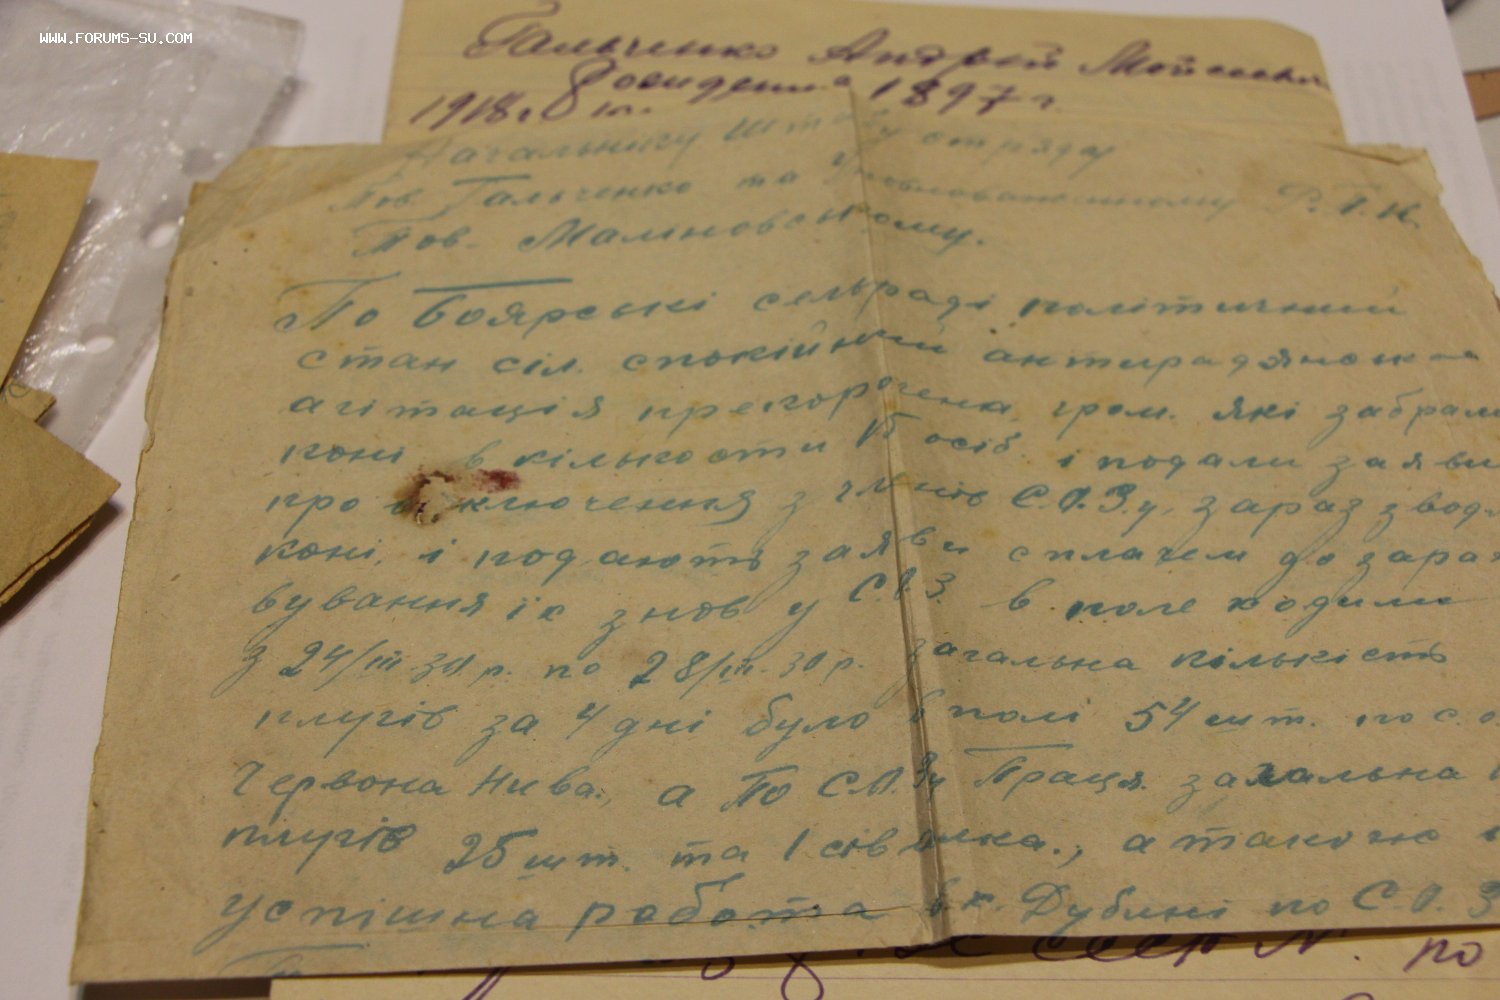 WWW.FORUMS-SU.COM
Гальченко Андрій Мойсеевич
рождения 1897 г.
1918 г.
Начальнику штабу отряду
Тов. Гальченко та Уповноваженному Р.П.К.
Тов. Маліновському.
По Боярські сельраді політичний
стан сіл. спокійний антирадянська
агітація прекорочена, гром. які забрали
коні в кількости 15 осіб. і подали заяви
про виключення з членів С.О.З.у, зараз зводя
коні, і подають заяви сплачем до зарах
вування їх знов у С.О.З. в поле ходили
з 24/III-30 р. по 28/III-30 р. загальна кількість
плугів за 4 дні було в полі 54 шт. по с.о
Червона Нива., а По С.О.Зу Праця. загальна к
плугів 25 шт. та 1 сівалка., а також і
успішна робота в с. Дубині по С.О.З
по